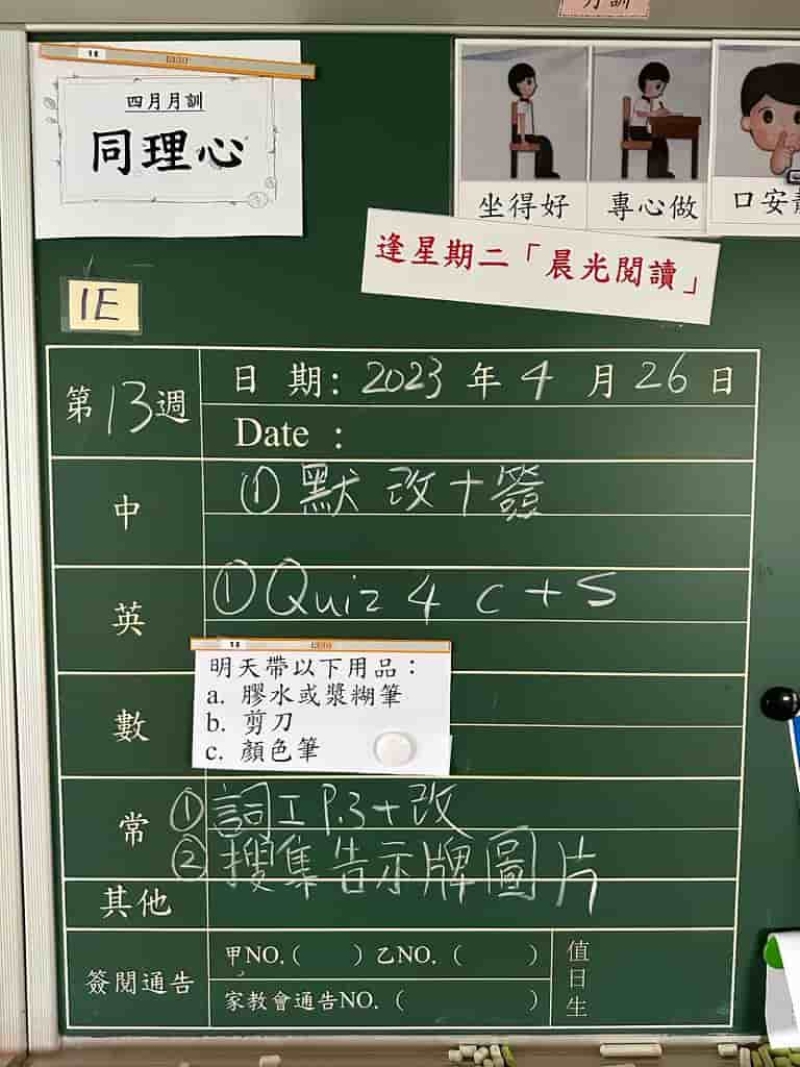 月訓
四月月訓
同理心
坐得好
專心做
口安靜
逢星期二「晨光閱讀」
1E
第13週
日 期: 2023 年 4 月 26 日
Date :
中
① 默 改+簽
英
① Quiz 4 c + s
數
明天帶以下用品：
a. 膠水或漿糊筆
b. 剪刀
c. 顏色筆
常
① 詞工 P.3+改
② 搜集告示牌圖片
其他
簽閱通告
甲NO.( ) 乙NO. ( )
家教會通告NO. ( )
值日生